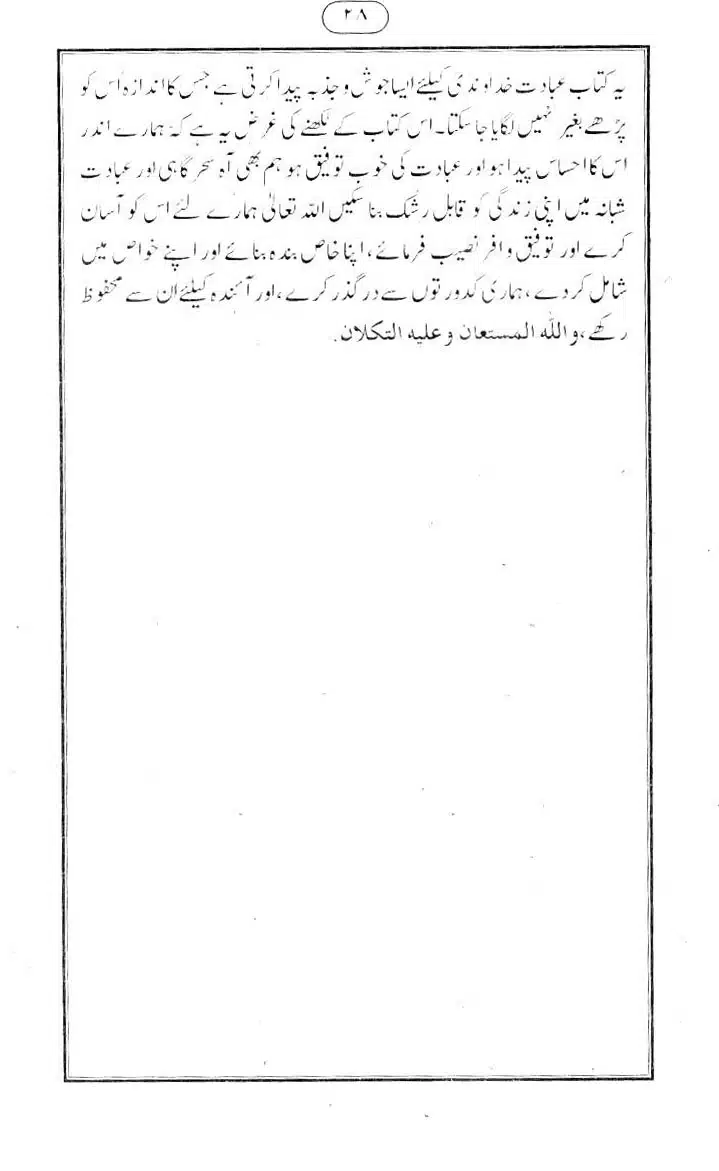 ۲۸
یہ کتاب عبادت خداوندی کیلئے ایسا جوش و جذبہ پیدا کرتی ہے جس کا اندازہ اُس کو
پڑھے بغیر نہیں لگایا جا سکتا۔ اس کتاب کے لکھنے کی غرض یہ ہے کہ ہمارے اندر
اس کا احساس پیدا ہو اور عبادت کی خوب توفیق ہو ہم بھی آہ سحر گاہی اور عبادت
شبانہ میں اپنی زندگی کو قابل رشک بنا سکیں اللہ تعالیٰ ہمارے لئے اس کو آسان
کرے اور توفیق وافر نصیب فرمائے، اپنا خاص بندہ بنائے اور اپنے خواص میں
شامل کردے، ہماری کدورتوں سے درگذر کرے، اور آئندہ کیلئے ان سے محفوظ
رکھے، واللہ المستعان وعلیہ التکلان.